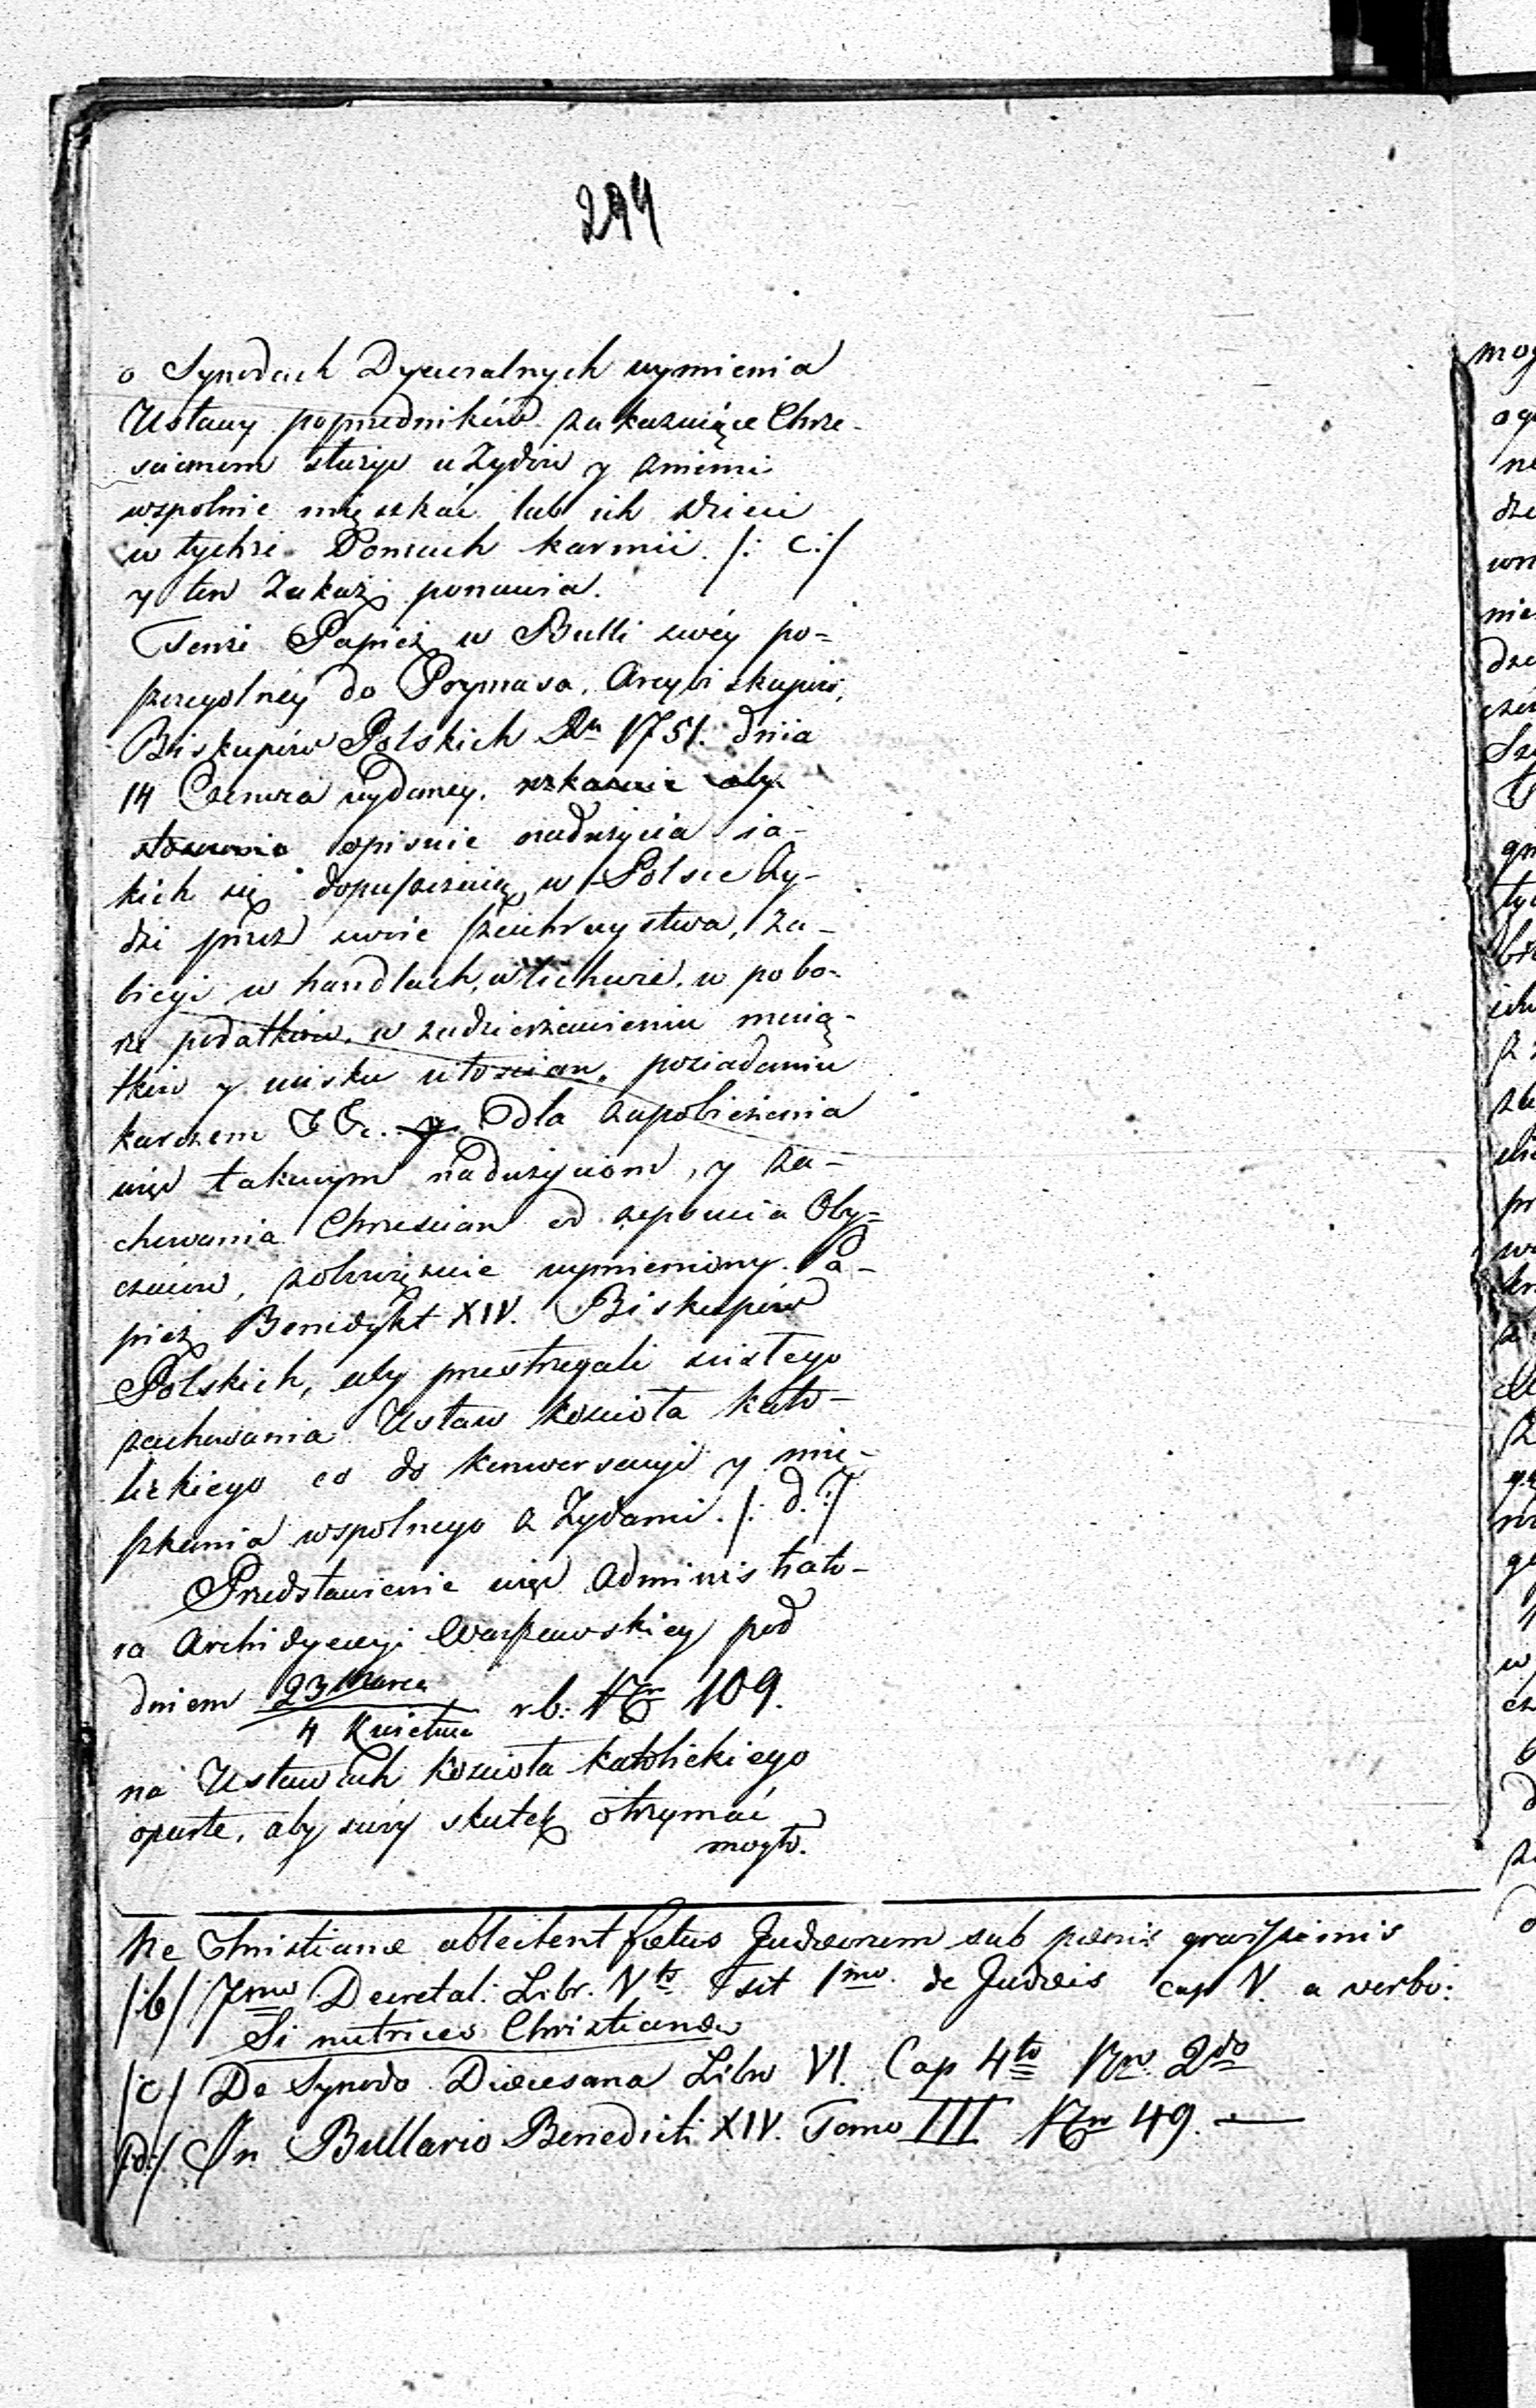 244
o Synodach Dyecezalnych wymienia
Ustawy poprzedników zakazuiące Chrze-
scianom służyc u Zydów y z niemi
wspolnie mięszkać lub ich dzieci
w tychże Domach karmić. /: c :/
y ten Zakaz ponawia.
Tenże Papież w Bulli swéy po-
szczegolnéy do Prymasa, Arcybiskupów,
Biskupów Polskich Ru 1751. dnia
14 Czerwca wydaney. wskazuie aby
stosownie opisuie nadużycia ia-
kich się dopuszczaią w Polsce Ży-
dzi przez swoie szachraystwa, za-
biegi w handlach, w lichwie, w pobo-
rze podatków, w zadzierżawieniu maią-
tków y ucisku włoscian, posiadaniu
karczem &c. y Dla zapobieżenia
więc takowym nadużyciom, y za-
chowania Chrzescian od zepsucia Oby-
czaiow, zobowięzuie wymieniony Pa-
pież Benedykt XIV. Biskupów
Polskich, aby przestrzegali scisłego
zachowania Ustaw koscioła kato-
lickiego co do konwersacyi y mie-
szkania wspolnego z Zydami. /: d. :/
Przedstawienie więc Administrato-
ra Archidyecezyi Warszawskiey pod
dniem 23 Marca
4 Kwietnia rb: Nr 109.
na Ustawach koscioła katolickiego
oparte, aby swóy skutek otrzymać
mogło.
Ne Christianæ ablectent fœtus Judæorum sub pœnis gravissimis
/:b/ 7mo Decretal: Libr. Vto Tit 1mo. de Judæis cap V. a verbo:
Si nutrices Christianæ
/c/ De Synodo Diœcesana Libro VI. Cap 4to Nro 2do
/:d:/ In Bullario Benedicti XIV. Tomo III Nro 49.